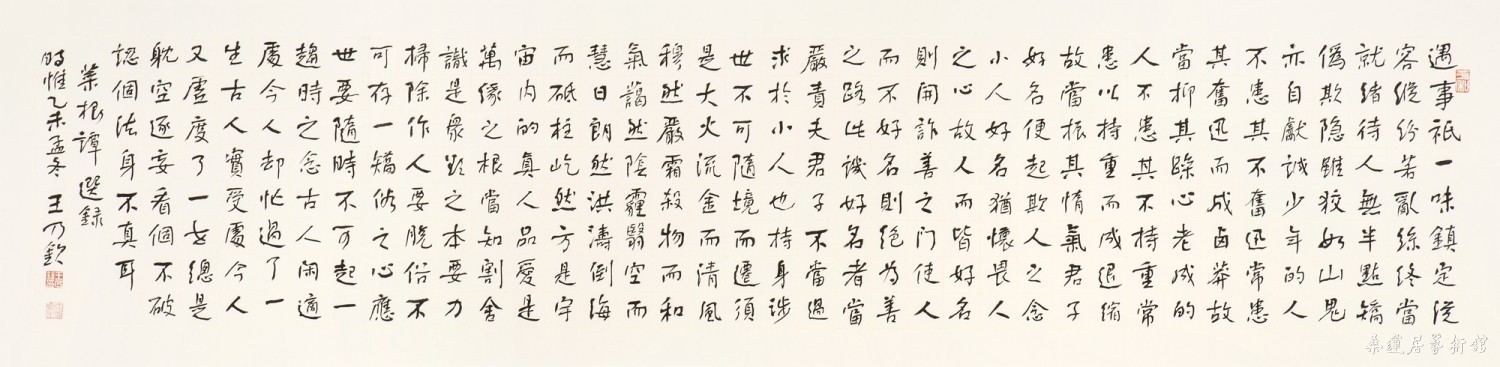 遇事祇一味鎮定從
容縱紛若亂絲終當
就緒待人無半點矯
偽欺隐雖狡如山鬼
亦自獻誠少年的人
不患其不奮迅常患
其奮迅而成鹵莽故
當抑其躁心老成的
人不患其不持重常
患以持重而成退縮
故當振其惰氣君子
好名便起欺人之念
小人好名猶懷畏人
之心故人而皆好名
則開詐善之門使人
而不好名則絕為善
之路此譏好名者當
嚴責夫君子不當過
求於小人也持身涉
世不可隨境而遷須
是大火流金而清風
穆然嚴霜殺物而和
氣藹然陰霾翳空而
慧日朗然洪濤倒海
而砥柱屹然方是宇
宙內的真人品愛是
萬緣之根當知割舍
識是眾欲之本要力
掃除作人要脫俗不
可存一矯俗之心應
世要隨時不可起一
趨時之念古人閑適
處今人却忙過了一
生古人實受處今人
又虛度了一世總是
耽空逐妄看個不破
認個法身不真耳
菜根譚選録
時惟乙未孟冬 王乃欽
桑蓮居藝術館